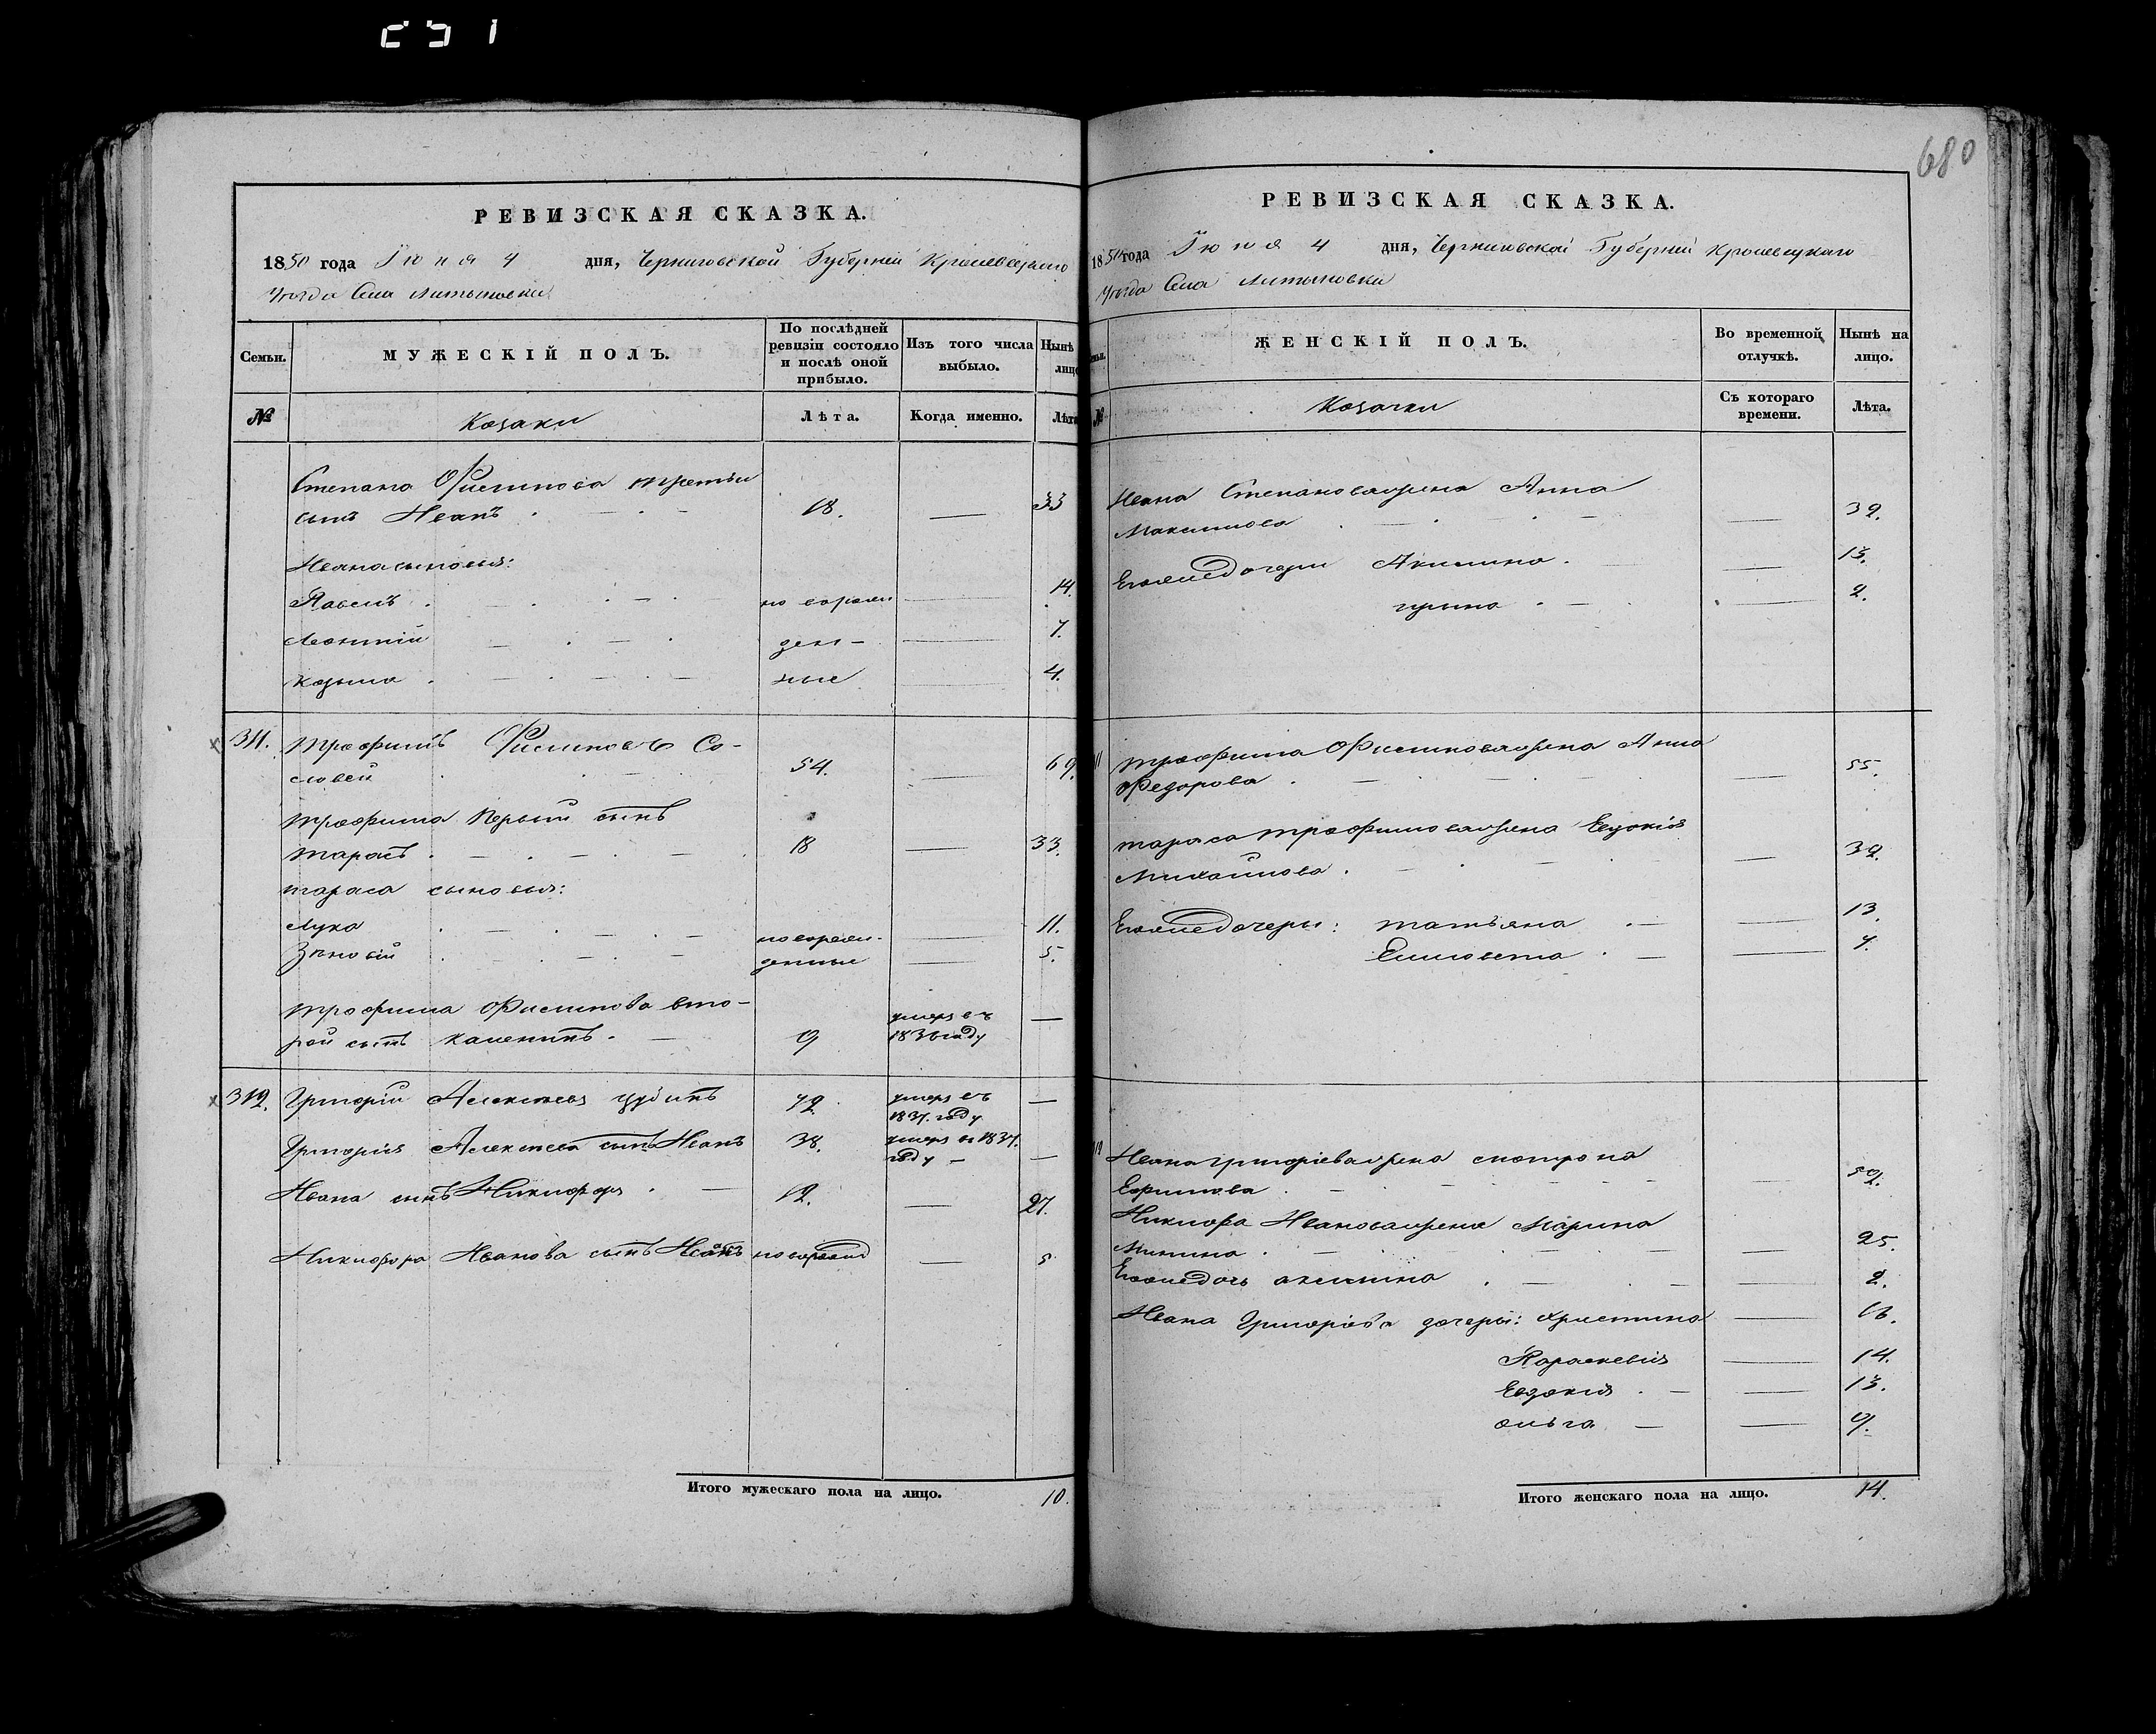 251
680
РЕВИЗСКАЯ СКАЗКА.
1850 года Іюня 4 дня, Черниговской Губерніи Кролевецкаго
Уѣзда Села Литвиновки
Семьи. МУЖЕСКІЙ ПОЛЪ. По послѣдней ревизіи состояло и послѣ оной прибыло. Изъ того числа выбыло. Нынѣ лицо
№ Козаки Лѣта. Когда именно. Лѣта
Степана Филипова третьи
сынъ Иванъ 18. — 33
Ивана сыновья:
Павелъ новорож — 14.
Леонтій ден — 7.
Козьма ные — 4.
311. Трофимъ Филиповъ Со-
ловей 54. — 69.
Трофима Первый сынъ
Тарасъ 18 — 33.
Тараса сыновья:
Лука новорож- — 11.
Зѣновій денные — 5.
Трофима Филипова вто-
рой сынъ Каленикъ 9 умеръ въ 1836 году —
312. Григорій Алексѣевъ 72 умеръ въ 1837. году —
Григорія Алексѣева сынъ Иванъ 38. умеръ въ 1837. году —
Ивана сынъ Никифоръ 12. — 27.
Никифора Иванова сынъ новорожд — 5
Итого мужескаго пола на лицо. 10.
РЕВИЗСКАЯ СКАЗКА.
1850 года Іюня 4 дня, Черниговской Губерніи Кролевецкаго
Уѣзда Села Литвиновки
ЖЕНСКІЙ ПОЛЪ. Во временной отлучкѣ. Нынѣ на лицо.
№ Козачки Съ котораго времени. Лѣта.
Ивана Степанова жена Анна
Максимова — 32.
Его же дочери Акилина — 13.
— 2.
Трофима Филипова жена Анна
Федорова — 55.
Тараса Трофимова жена Евдокія
Михайлова — 32.
Его же дочери: Татьяна — 13.
Елисовета — 7.
Ивана Григоріева жена
Ефимова — 52.
Никифора Иванова жена Марина
— 25.
Его же дочь Акилина — 2.
Ивана Григоріева дочери: Христина — 16.
Параскевія — 14.
Евдокія — 13.
Ольга — 9.
Итого женскаго пола на лицо. 14.